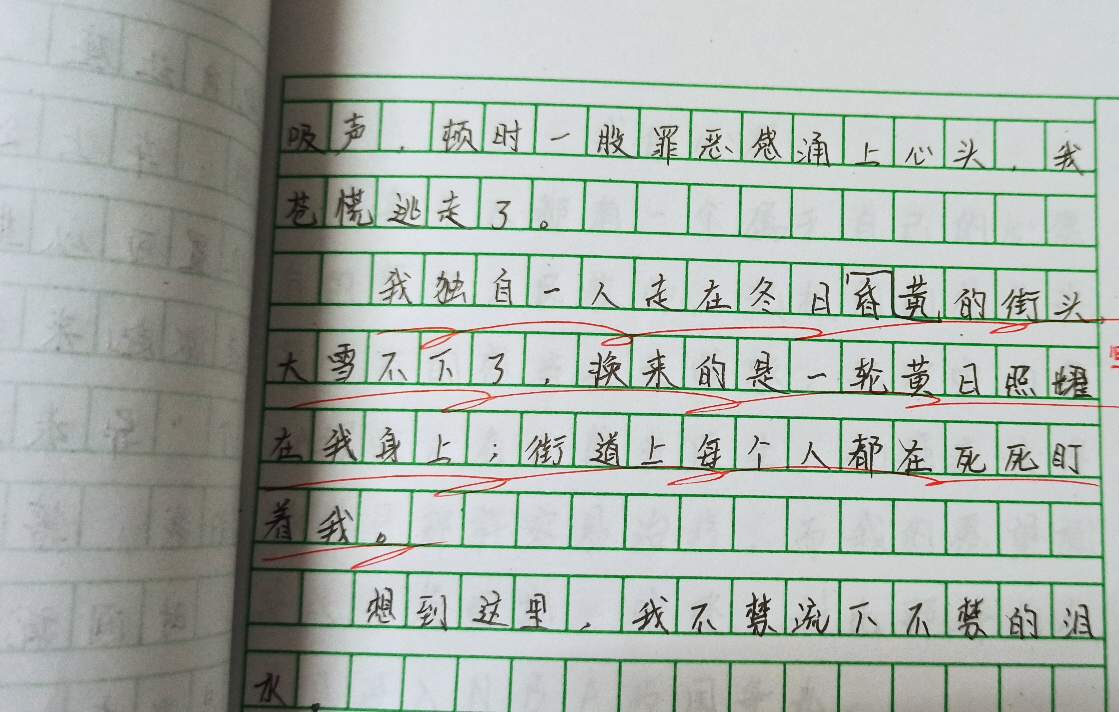 吸声，顿时一股罪恶感涌上心头，我
苍慌逃走了。
我独自一人走在冬日昏黄的街头，
大雪不下了，换来的是一轮黄日照耀
在我身上；街道上每个人都在死死盯
着我。
想到这里，我不禁流下不禁的泪
水。